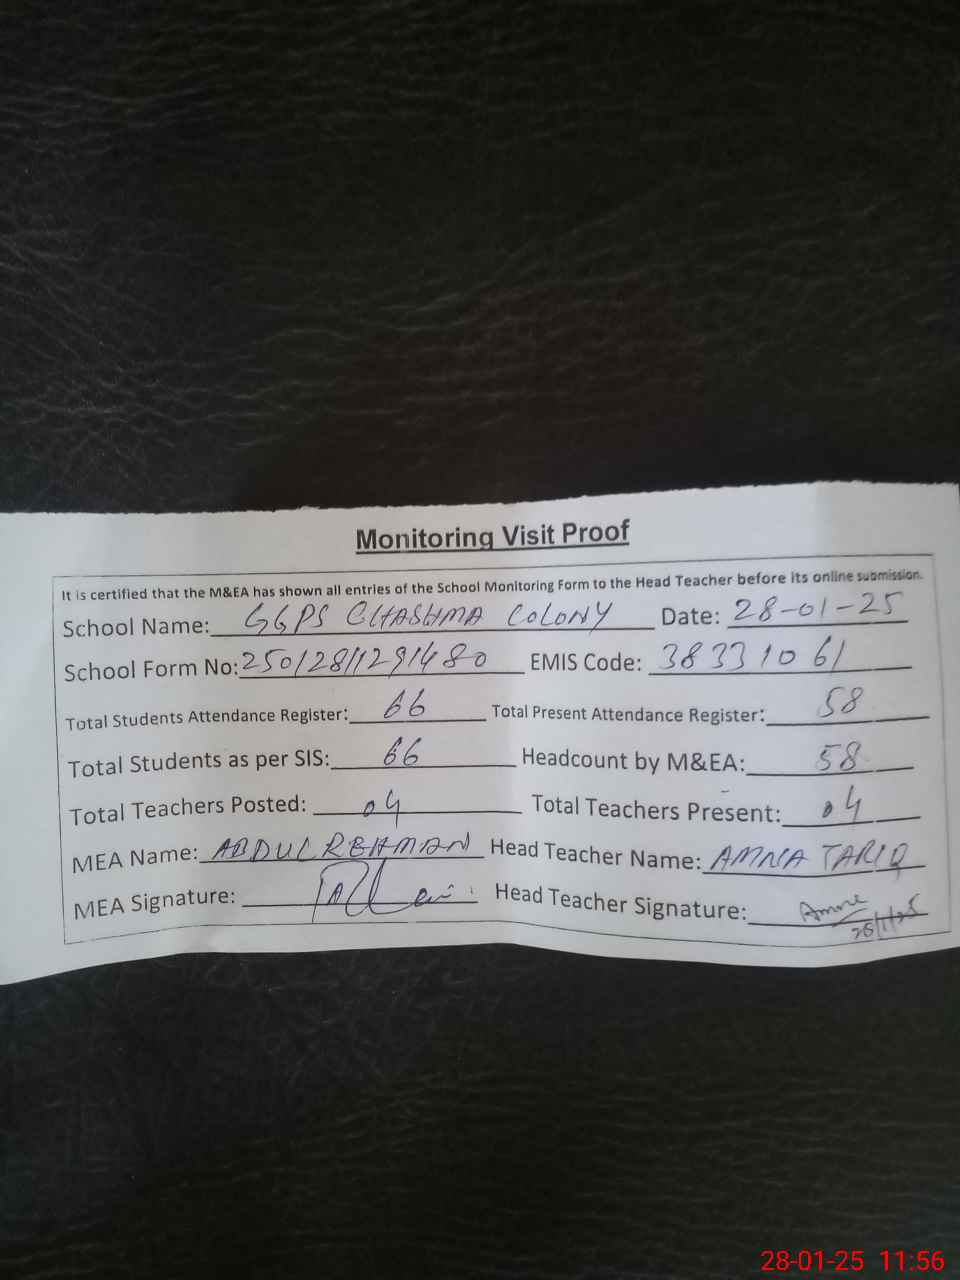 Monitoring Visit Proof
It is certified that the M&EA has shown all entries of the School Monitoring Form to the Head Teacher before its online submission.
School Name: GGPS CHASHMA COLONY Date: 28-01-25
School Form No: 25012811291480 EMIS Code: 38331061
Total Students Attendance Register: 66 Total Present Attendance Register: 58
Total Students as per SIS: 66 Headcount by M&EA: 58
Total Teachers Posted: 04 Total Teachers Present: 04
MEA Name: ABDUL REHMAN Head Teacher Name: AMNA TARIQ
MEA Signature: Head Teacher Signature: Amna
28/1/25
28-01-25 11:56